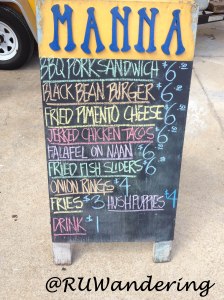 MANNA
BBQ PORK SANDWICH $6.50
BLACK BEAN BURGER $6
FRIED PIMENTO CHEESE $6
JERKED CHICKEN TACOS $6
FALAFEL ON NAAN $6
FRIED FISH SLIDERS $6
ONION RINGS $4
FRIES $3 HUSHPUPPIES $4
DRINK $1
@RUWandering